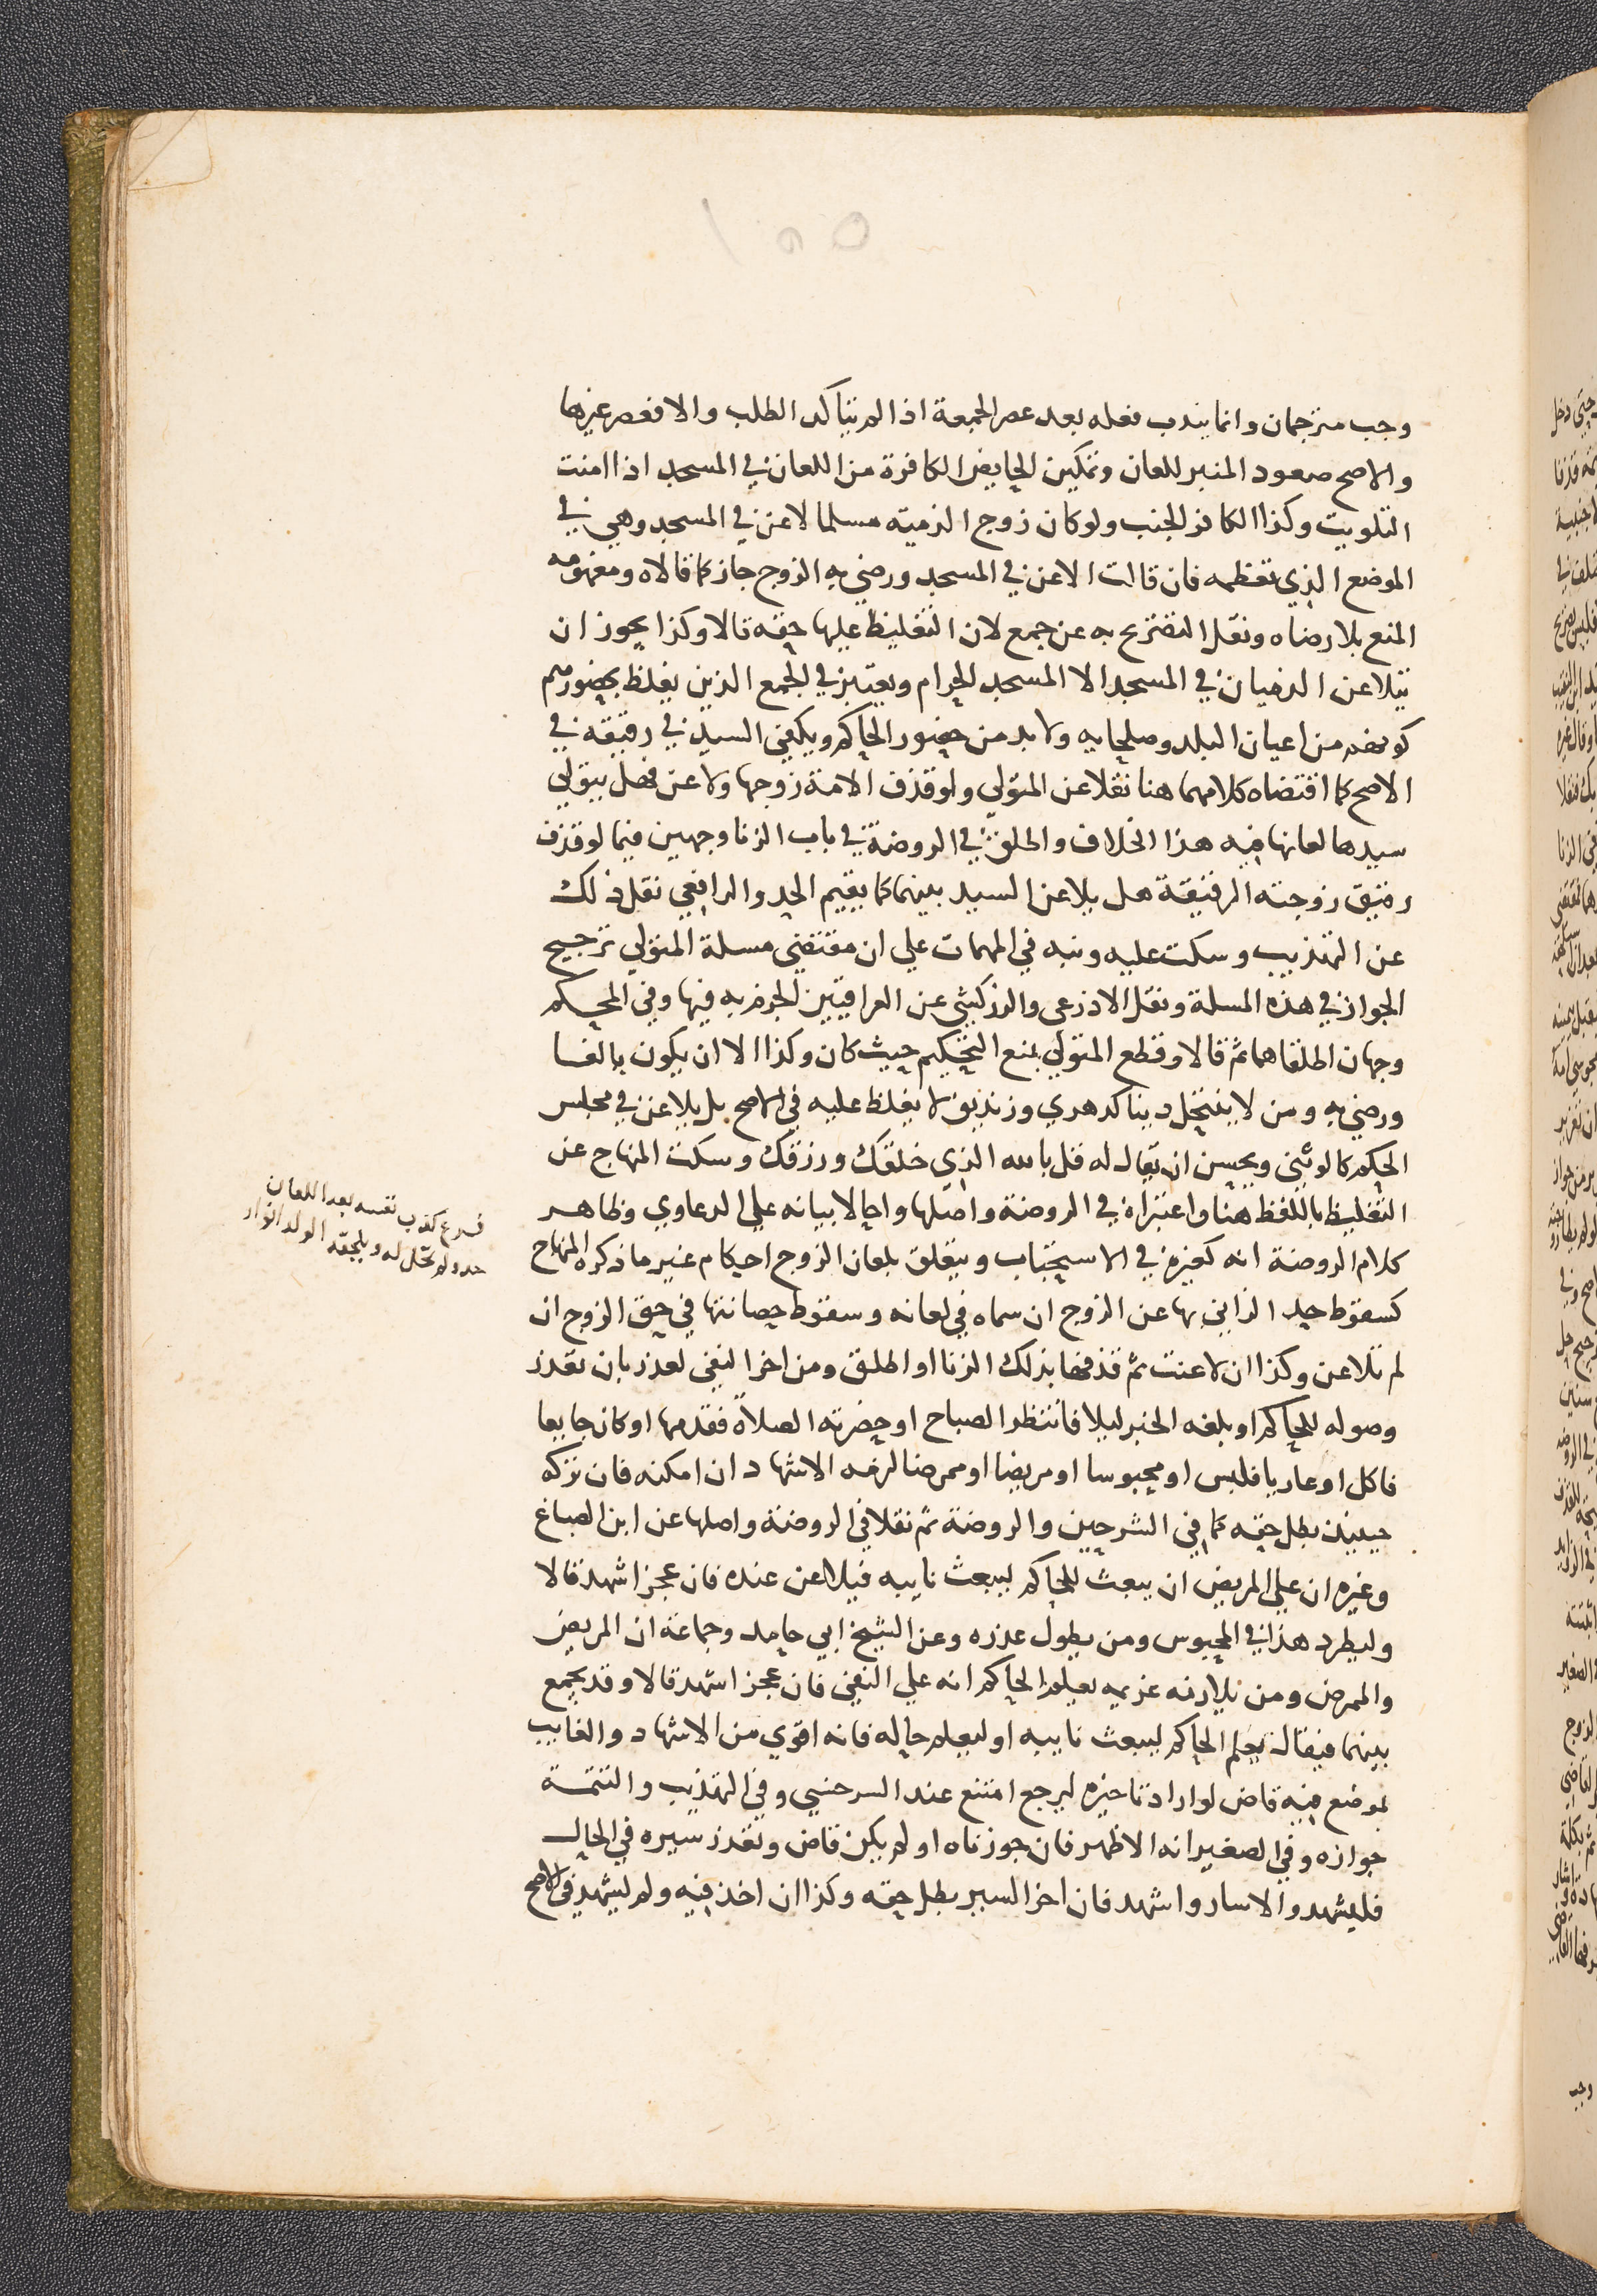 وجب مترجمان وانما يندب فعله بعد عصر الجمعة اذا لم يتاكد الطلب والا فعصر غيرها
والاصح صعود المنبر للعان وتمكين الحايض الكافرة من اللعان في المسجد اذا امنت
التلويث وكذا الكافر الجنب ولو كان زوج الذمية مسلما لاعن في المسجد وهي في
الموضع الذي تعظمه فان قالت الاعن في المسجد ورضي به الزوج جاز كما قالاه ومفهومه
المنع بلا رضاه ونقل التصريح به عن جمع لان التغليظ عليها حقه قالا وكذا يجوز ان
يتلاعن الذميان في المسجد الا المسجد الحرام ويعتبر في الجمع الذين يغلظ بحضورهم
كونهم من اعيان البلد وصلحايه ولا بد من حضور الحاكم ويكفي السيد في رقيقه في
الاصح كما اقتضاه كلامهما هنا نقلا عن المتولي ولو قذف الامة زوجها ولاعن فهل يتولي
سيدها لعانها فيه هذا الخلاف واطلق في الروضة في باب الزنا وجهين فيما لو قذف
رقيق زوجته الرقيقة هل يلاعن السيد بينهما كما يقيم الحد والرافعي نقل ذلك
عن التهذيب وسكت عليه ونبه في المهمات علي ان مقتضي مسلة المتولي ترجيح
الجواز في هذه المسلة ونقل الاذرعي والزركشي عن العراقيين الجزم به فيها وفي المحكم
وجهان اطلقاهما ثم قالا وقطع المتولي بمنع التحكيم حيث كان وكذا الا ان يكون بالغا
ورضي به ومن لا ينتحل دينا كدهري وزنديق لا يغلظ عليه في الاصح بل يلاعن في مجلس
الحكم كالوثني ويحسن ان يقال له قل بالله الذي خلقك ورزقك وسكت المنهاج عن
التغليظ باللفظ هنا واعتبراه في الروضة واصلها واحالا بيانه علي الدعاوي وظاهر
كلام الروضة انه كغيره في الاستحباب ويتعلق بلعان الزوج احكام غير ما ذكره المنهاج
كسقوط حد الزاني بها عن الزوج ان سماه في لعانه وسقوط حصانتها في حق الزوج ان
لم تلاعن وكذا ان لاعنت ثم قذفها بذلك الزنا او اطلق ومن اخر النفي لعذر بان تعذر
وصوله للحاكم او بلغه الخبر ليلا فانتظر الصباح او حضرته الصلاة فقدمها او كان جايعا
فاكل او عاريا فلبس او محبوسا او مريضا او ممرضا لزمه الاشهاد ان امكنه فان تركه
حينيذ بطل حقه كما في الشرحين والروضة ثم نقلا في الروضة واصلها عن ابن الصباغ
وغيره ان علي المريض ان يبعث للحاكم ليبعث نايبه فيلاعن عنده فان عجز اشهد قالا
وليطرد هذا في المحبوس ومن يطول عذره وعن الشيخ ابي حامد وجماعة ان المريض
والممرض ومن يلازمه غريمه يعلم الحاكم انه علي النفي فان عجز اشهد قالا وقد يجمع
بينهما فيقال يعلم الحاكم ليبعث نايبه او ليعلم حاله فانه اقوي من الاشهاد والغايب
بموضع فيه قاض لو اراد تاخيره ليرجع امتنع عند السرخسي وفي التهذيب والتتمة
جوازه وفي الصغير انه الاظهر فان جوزناه او لم يكن قاض وتعذر سيره في الحال
فليشهد والا سار واشهد فان اخر السير بطل حقه وكذا ان اخذ فيه ولم يشهد في الاصح
فرع كذب نفسه بعد اللعان
حد ولم تحل له ويلحقه الولد انوار